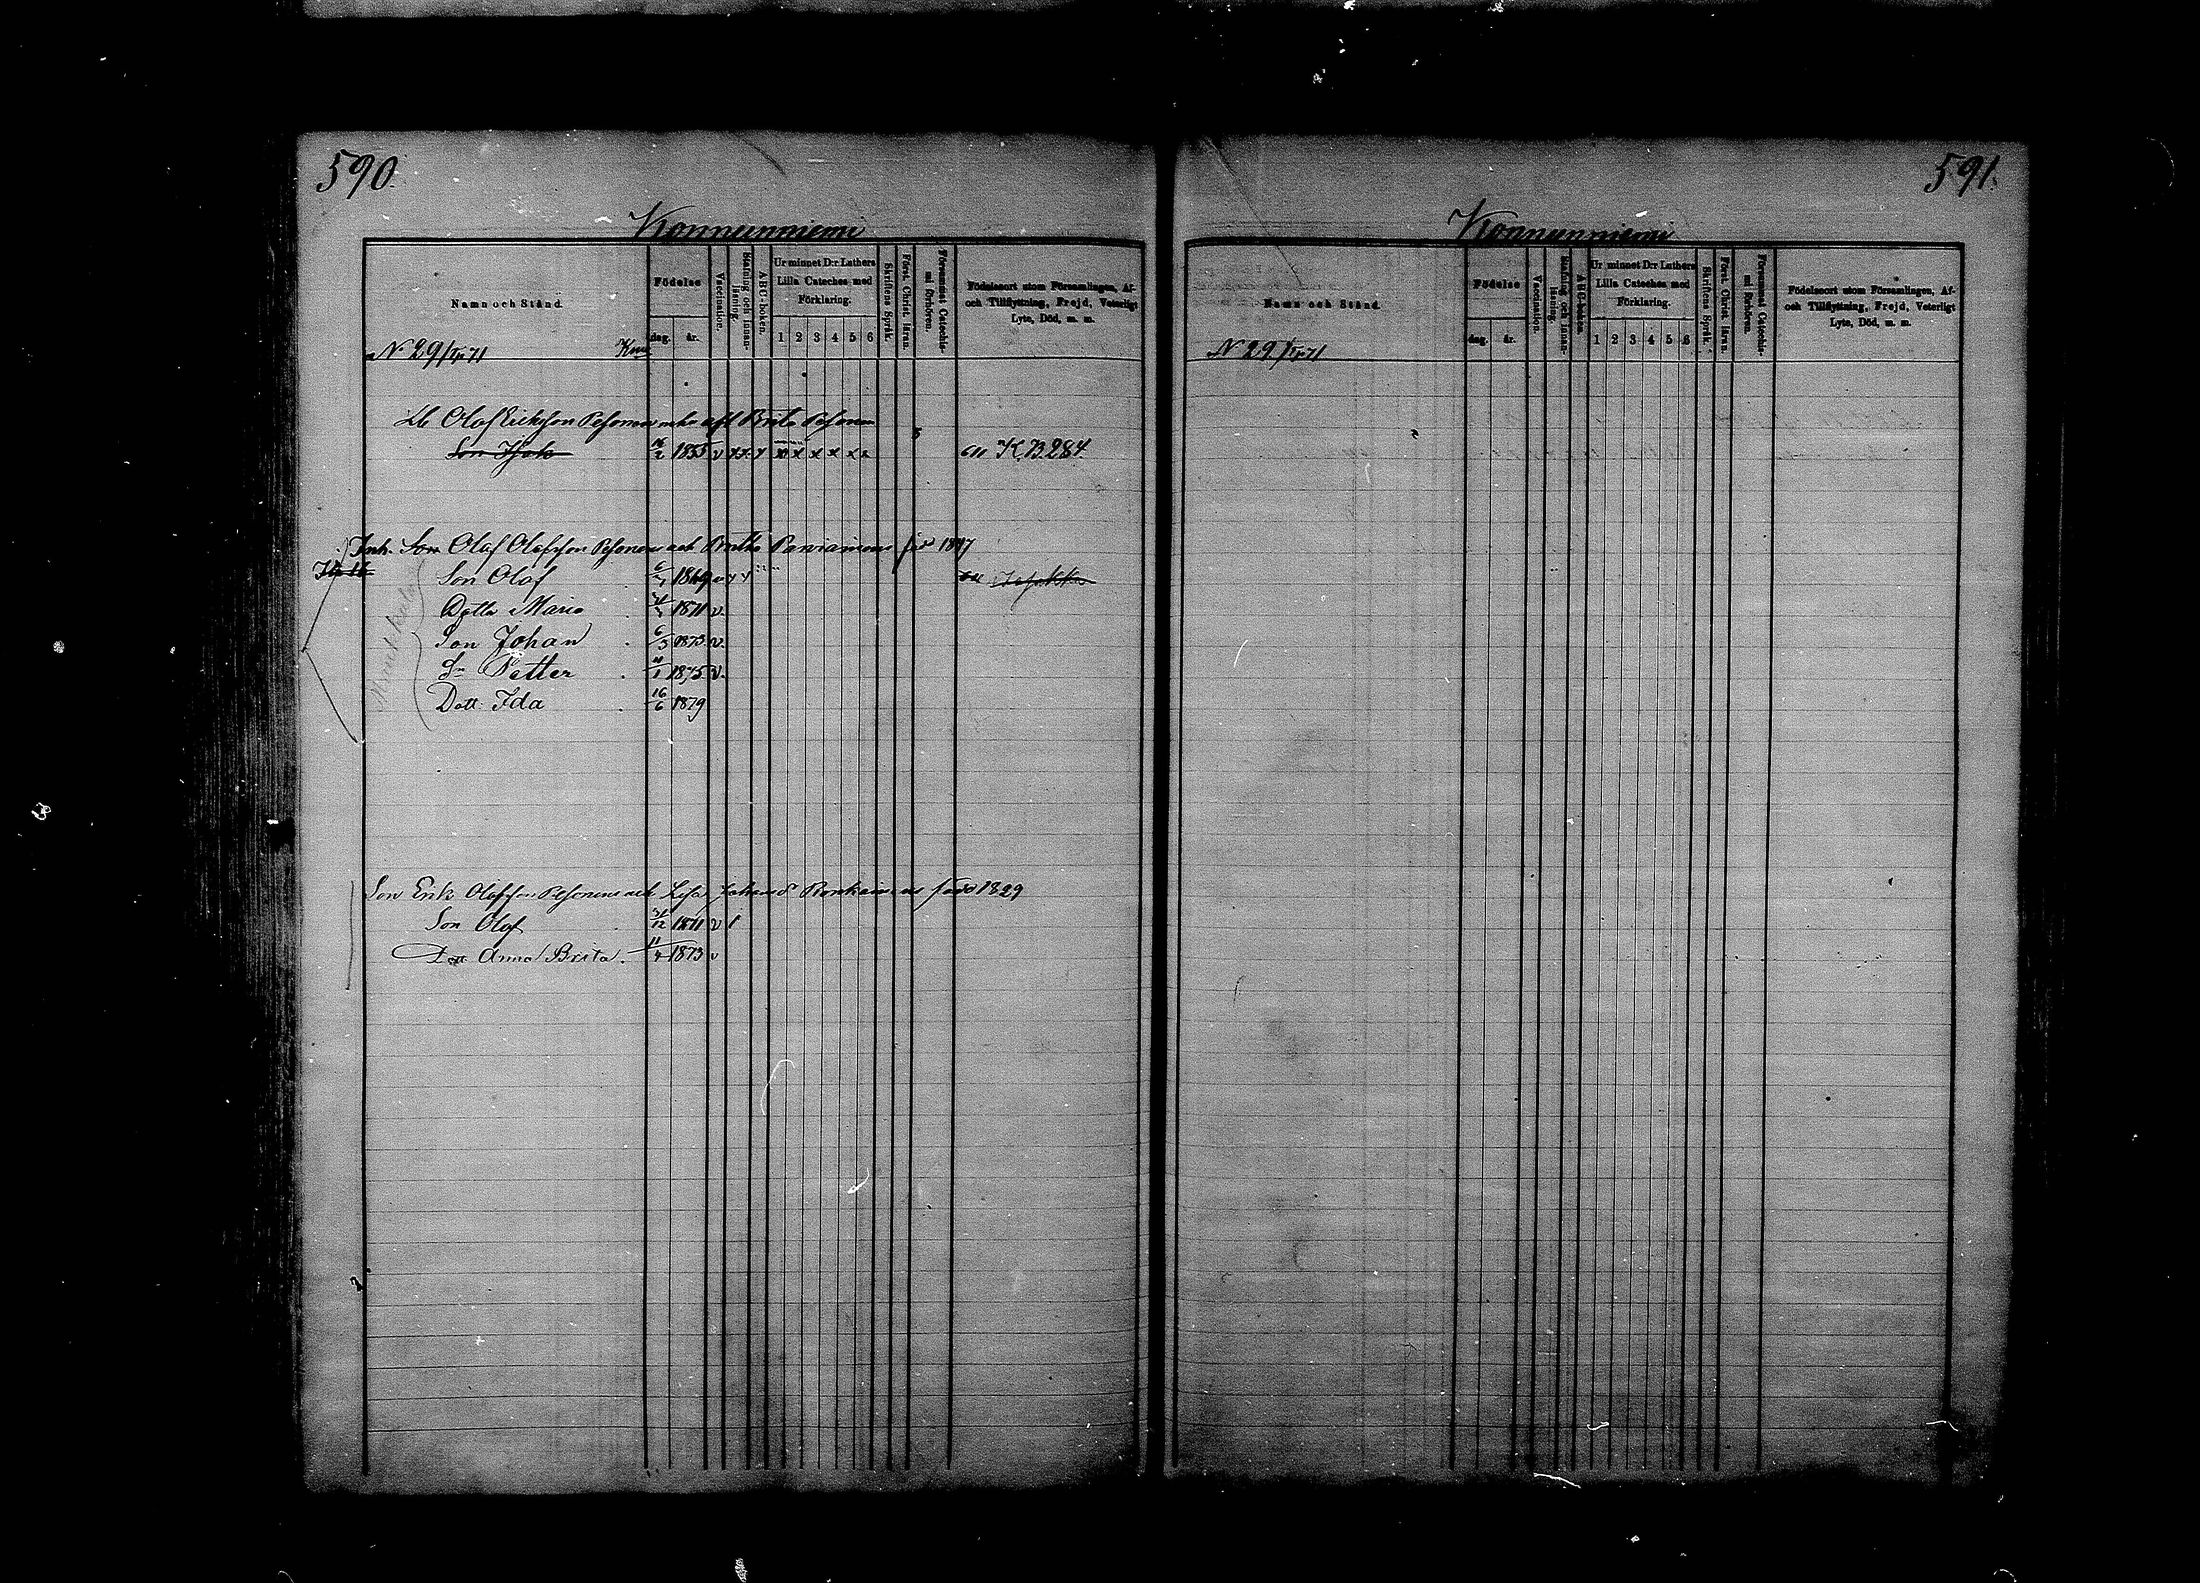 590.
Konnunniemi
Namn och Stånd.
Födelse
dag. år.
Vaccination.
Stafning och Innan-läsning.
ABC-boken.
Ur minnet D:r Luthers Lilla Cateches med Förklaring.
1 2 3 4 5 6
Skriftens Språk.
Först. Christ. läran.
Försummat Catechismi förhören.
Födelseort utom Församlingen, Af- och Tillflyttning, Frejd, Veterligt Lyte, Död, m. m.
N 29 71
Olof Erickson Pesonen Brita Pesonen
Son Isak 1855 v x x x x x x K.B.284.
Inh. Son Olof Olofsson Pesonens och född 1847
Son Olof 1869
Dottr Maria 1871 v.
Son Johan 6/3 1873 v.
Sn Petter 1875 v.
Dott. Ida 16/6 1879
Son Erik Olofsson Pesonens och Lisa Johansdr född 1829
Son Olof 31/12 1871 v
Dott Anna Brita. 11/4 1873 v
591.
Konnunniemi
Namn och Stånd.
Födelse
dag. år.
Vaccination.
Stafning och Innan-läsning.
ABC-boken.
Ur minnet D:r Luthers Lilla Cateches med Förklaring.
1 2 3 4 5 6
Skriftens Språk.
Först. Christ. läran.
Försummat Catechismi förhören.
Födelseort utom Församlingen, Af- och Tillflyttning, Frejd, Veterligt Lyte, Död, m. m.
N 29 71